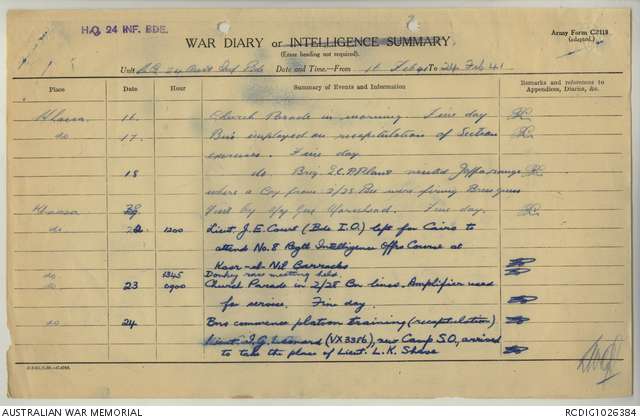 H.Q. 24 INF. BDE.
WAR DIARY or INTELLIGENCE SUMMARY
(Erase heading not required).
Army Form C2118
(adapted.)
Unit H.Q. 24 Aust Inf Bde Date and Time.—From 16 Feb 41 To 24 Feb 41
Place Date Hour Summary of Events and Information Remarks and references to Appendices, Diaries, &c.
Khassa 16. Church Parade in morning. Fine day
do. 17. Bns employed on recapitulation of Section
exercises. Fine day.
18 do. Brig. E.C.P. Plant visited Jaffa range
where a Coy from 2/28 Bn were firing Bren guns
Khassa Visit by Gen Morshead. Fine day.
do 22 1200 Lieut. J.E. Court (Bde I.O.) left for Cairo to
attend No. 8 Intelligence Offrs Course at
Kasr-el-Nil Barracks
do. 1345 Donkey race meeting held.
do. 23 0900 Church Parade in 2/28 Bn lines. Amplifier used
for service. Fine day.
do 24 Bns commence platoon training (recapitulation)
Lieut. Leonard (VX3386), new Camp S.O., arrived
to take the place of Lieut. L.K. Shave
AUSTRALIAN WAR MEMORIAL
RCDIG1026384